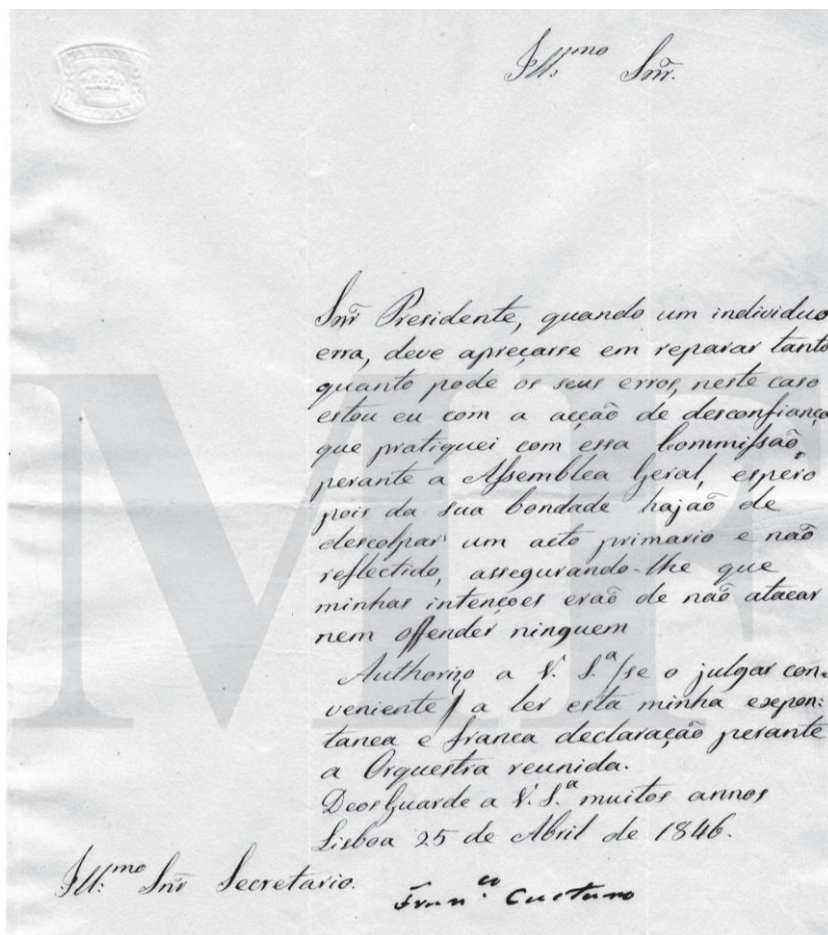 Ill.mo Snr.
Snr Presidente, quando um individuo
erra, deve apreçarse em reparar tanto
quanto pode os seus erros, neste caso
estou eu com a acção de desconfiança
que pratiquei com essa Commissão,
perante a Assemblea Geral, espero
pois da sua bondade hajaõ de
descolpar um acto primario e naõ
reflectido, assegurando-lhe que
minhas intençoes eraõ de naõ atacar
nem offender ninguem
Authorizo a V. S.ª /se o julgar con:
veniente/ a ler esta minha expon:
tanea e franca declaração perante
a Orquestra reunida.
Deos Guarde a V. S.ª muitos annos
Lisboa 25 de Abril de 1846.
Ill:mo Snr Secretario.
Fran.co Caetano
MF